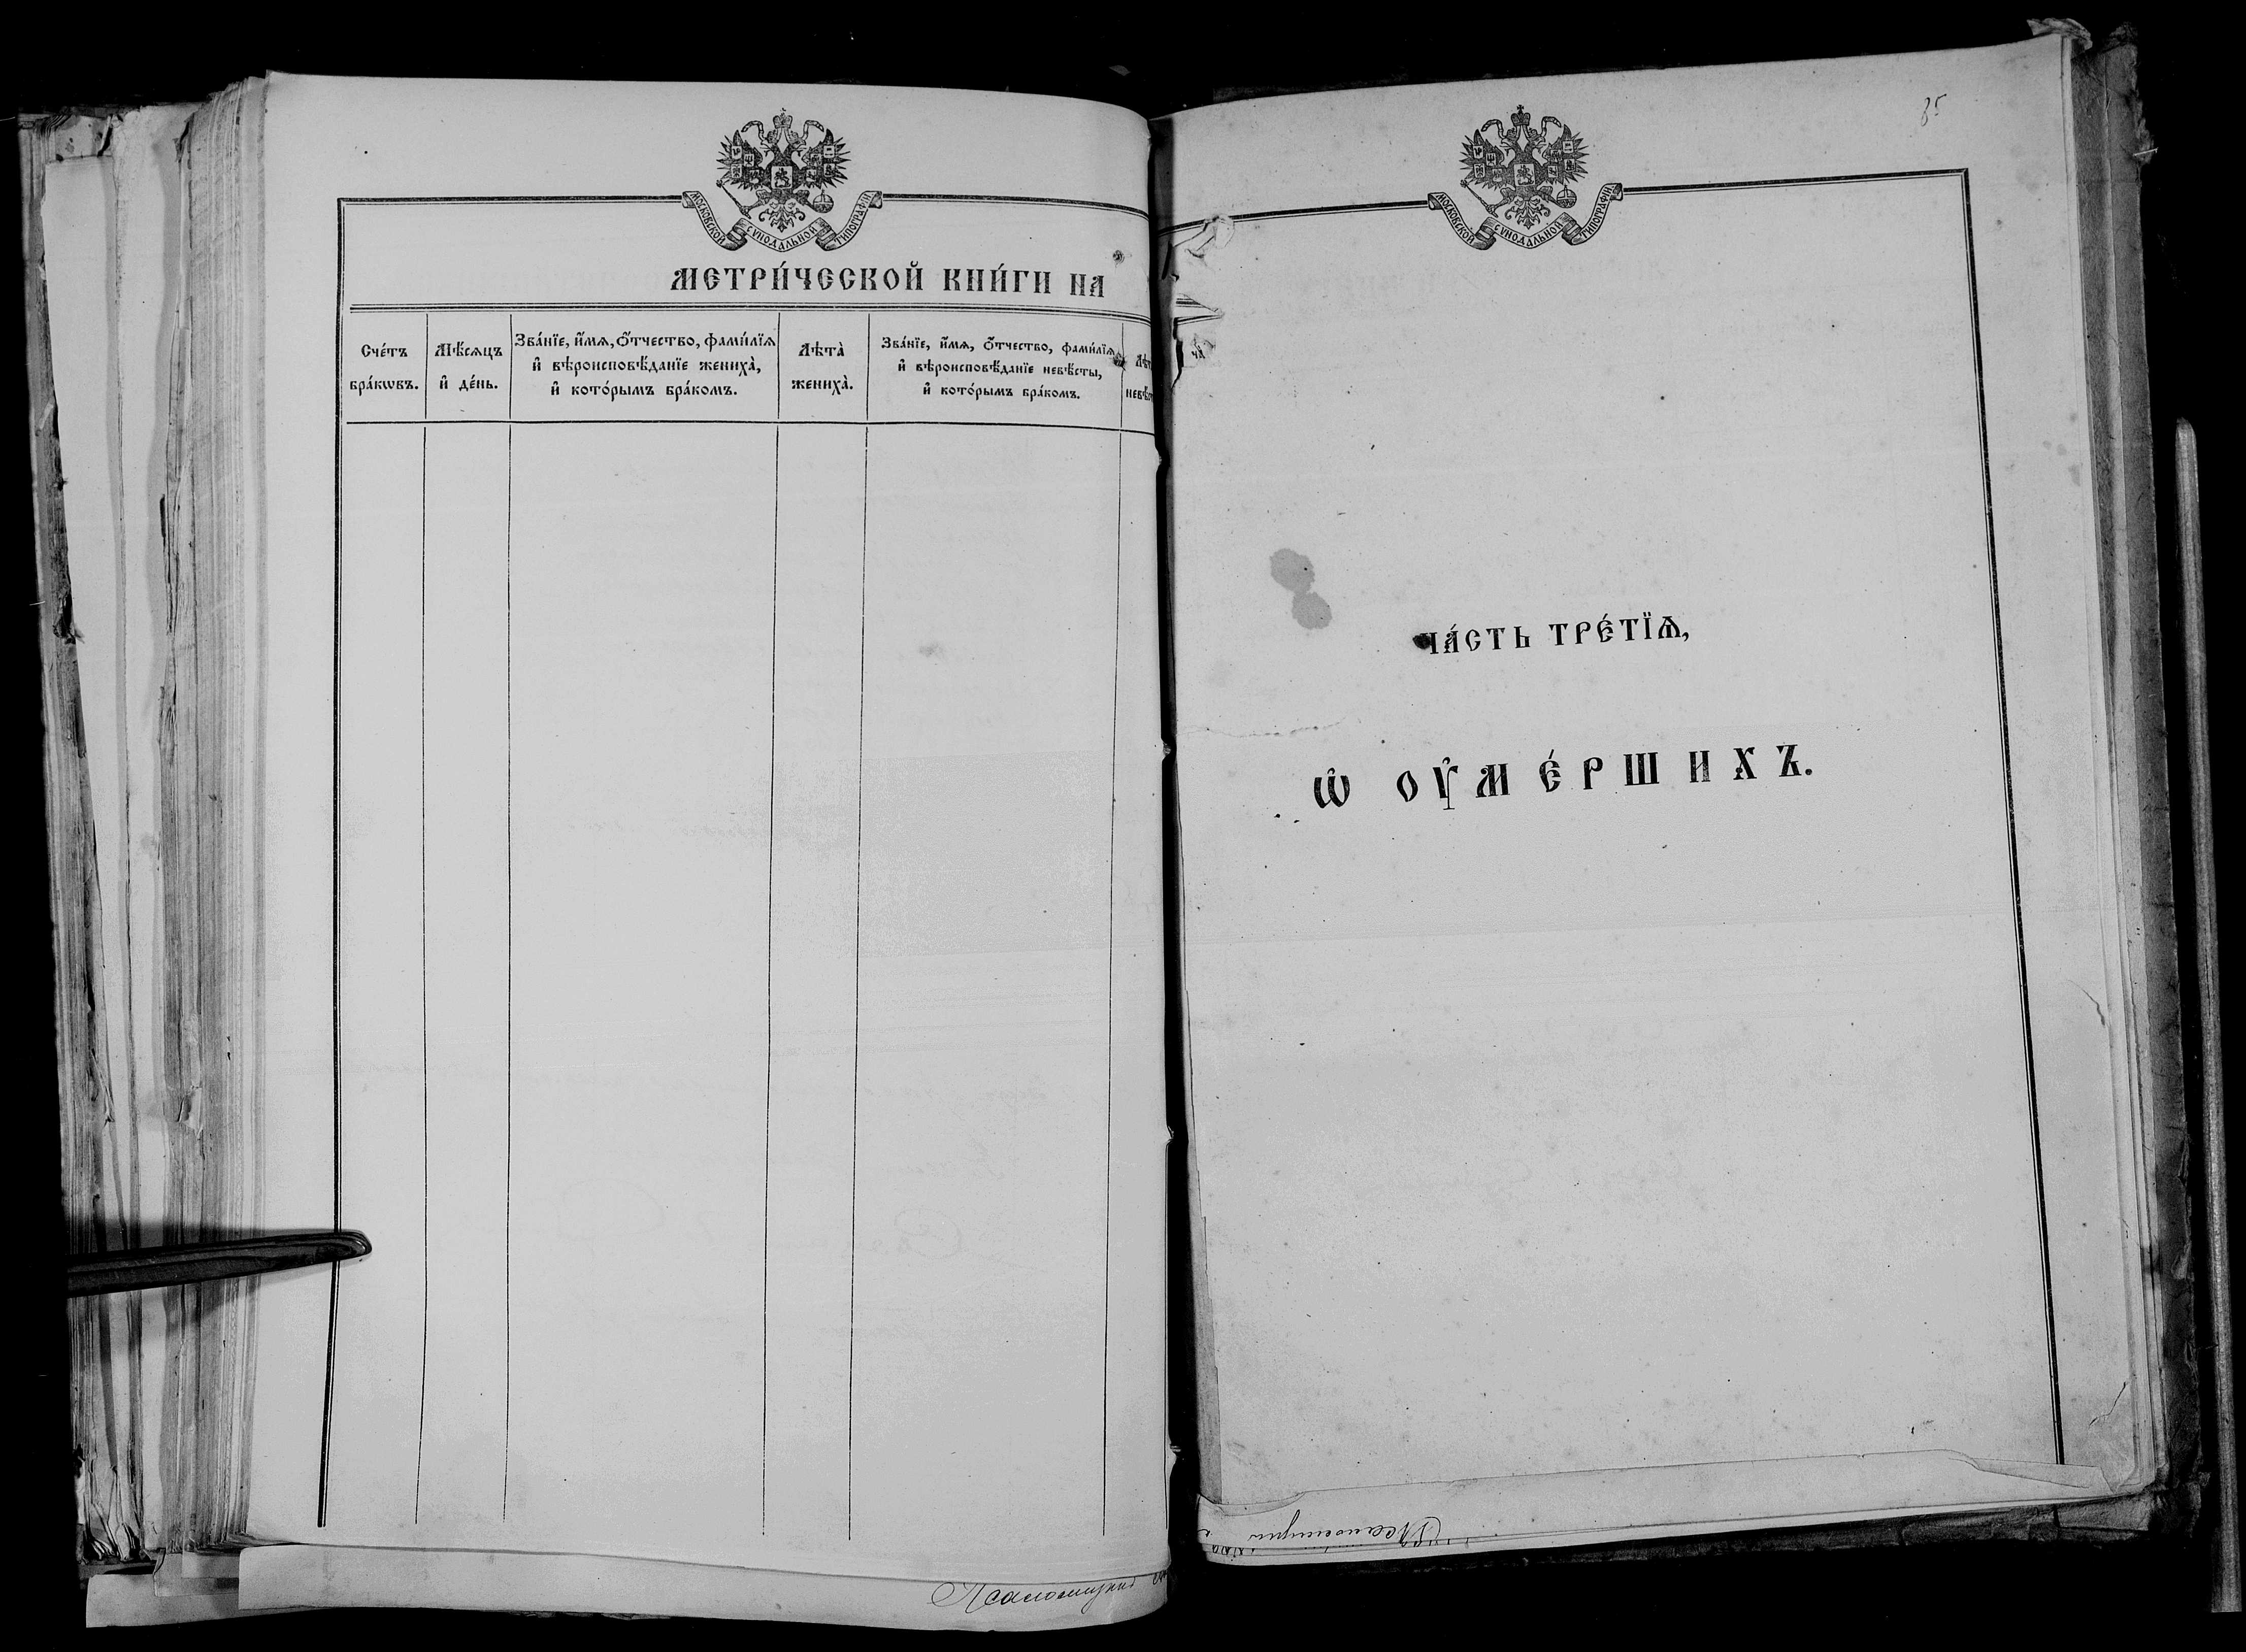 МОСКОВСКОЙ СѴНОДАЛЬНОЙ ТИПОГРАФІИ
МЕТРИ́ЧЕСКОЙ КНИ́ГИ НА
Сче́тъ
бра́кѡвъ.
Мѣ́сѧцъ
и҆ де́нь.
Зва́нїе, и҆́мѧ, ѻ҆́тчество, фами́лїѧ
и҆ вѣроисповѣ́данїе жениха̀,
и҆ кото́рымъ бра́комъ.
Лѣта̀
жениха̀.
Зва́нїе, и҆́мѧ, ѻ҆́тчество, фами́лїѧ
и҆ вѣроисповѣ́данїе невѣ́сты,
и҆ кото́рымъ бра́комъ.
Лѣт
невѣ́с
Псаломщикъ
85
МОСКОВСКОЙ СѴНОДАЛЬНОЙ ТИПОГРАФІИ
ЧА́СТЬ ТРЕ́ТЇѦ,
Ѡ҆ ОУ҆МЕ́РШИХЪ.
Псаломщикъ